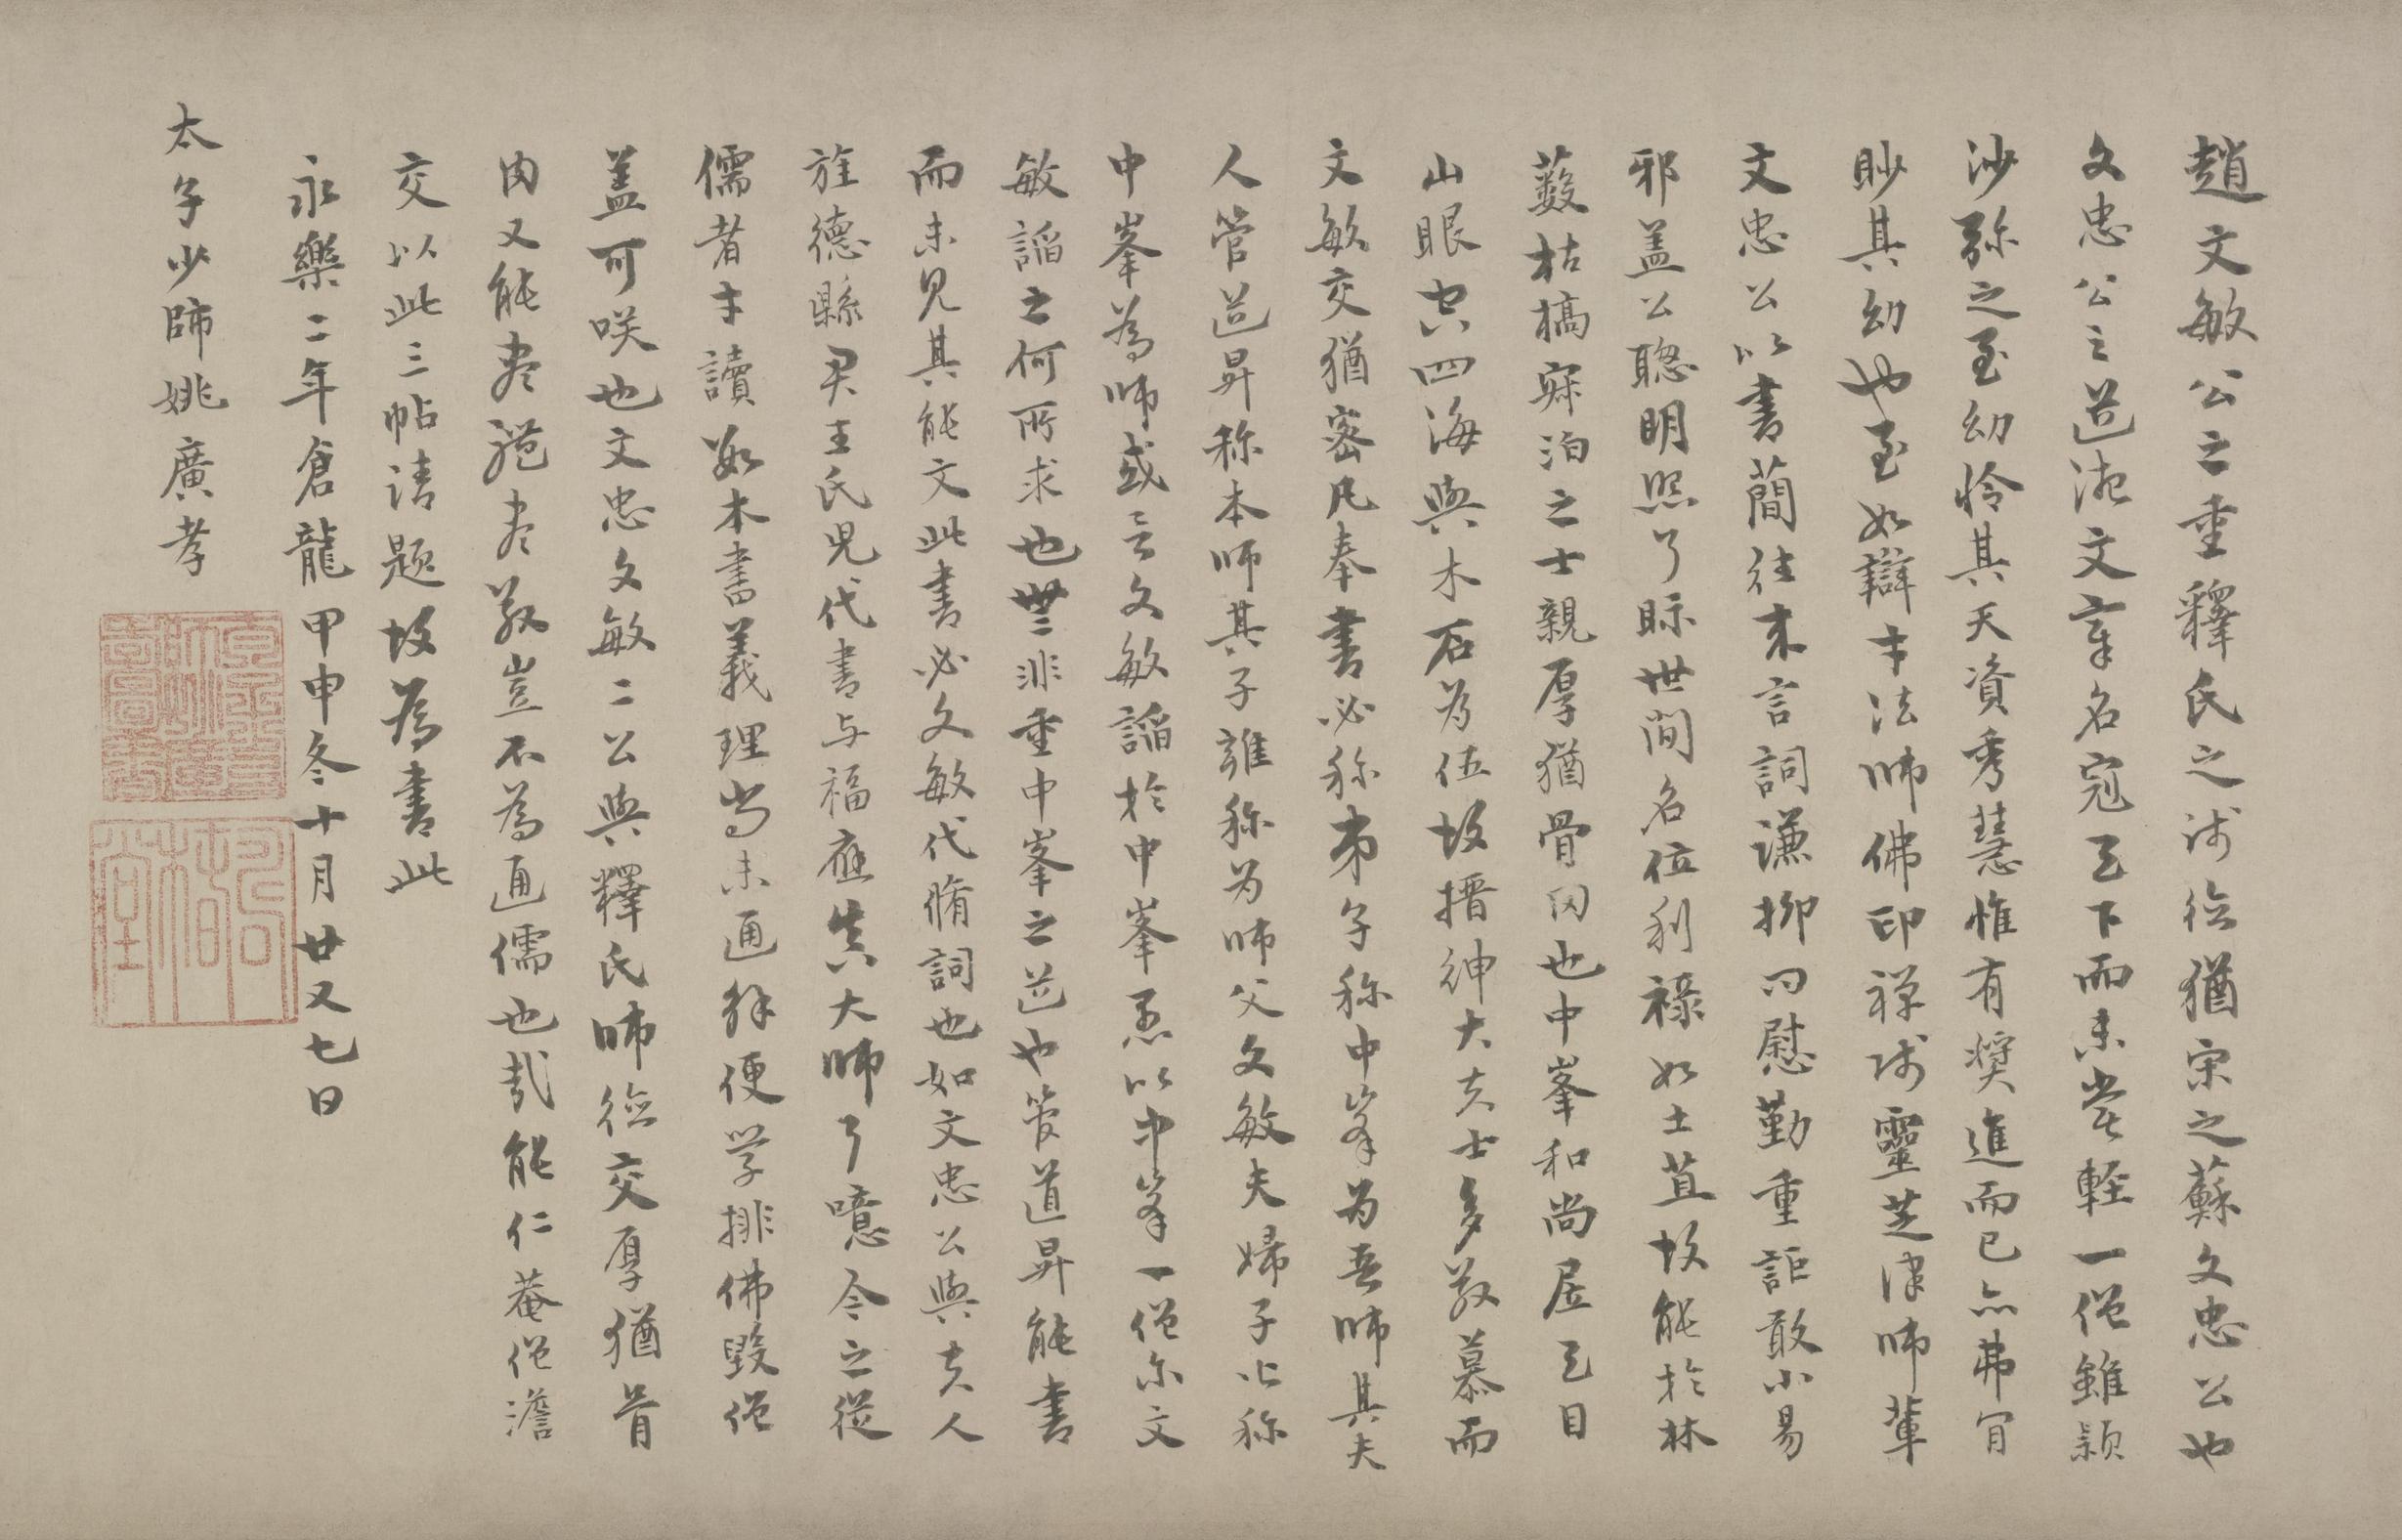 趙文敏公之重釋氏之沙徒猶宋之蘇文忠公也
文忠公之道德文章名冠天下而未嘗輕一僧雖穎
沙弥之至幼怜其天資秀慧惟有奬進而已亦弗肎
眇其幼也至如辯才法師佛印禅師靈芝律師輩
文忠公以書蕳往来言詞謙抑問慰勤重詎敢小易
邪盖公聦明照了眎世間名位利禄如土苴故能於林
薮枯槁寂泊之士親厚猶骨肉也中峯和尚居天目
山眼空四海與木石为伍故搢紳大夫士多敬慕而
文敏交猶密凡奉書必称弟子称中峯为吾師其夫
人管道昇称本師其子雍称为師父文敏夫婦子止称
中峯為師或言文敏謟於中峯悪以中峯一僧尔文
敏謟之何所求也無非重中峯之道也管道昇能書
而未見其能文此書必文敏代脩詞也如文忠公與夫人
旌德縣君王氏児代書与福應真大師了噫今之從
儒者才讀數本書義理尚未通解便学排佛毀僧
盖可咲也文忠文敏二公與釋氏師徒交厚猶骨
肉又能盡禮盡敬豈不為通儒也哉能仁菴僧澹
交以此三帖請题故為書此
永樂二年倉龍甲申冬十月廿又七日
太子少師姚廣孝